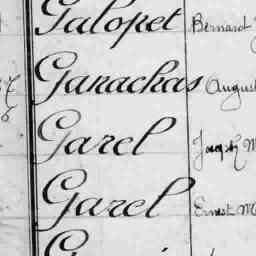 Galopet Bernard
Ganachas August
Garel Joseph M
Garel Ernest M